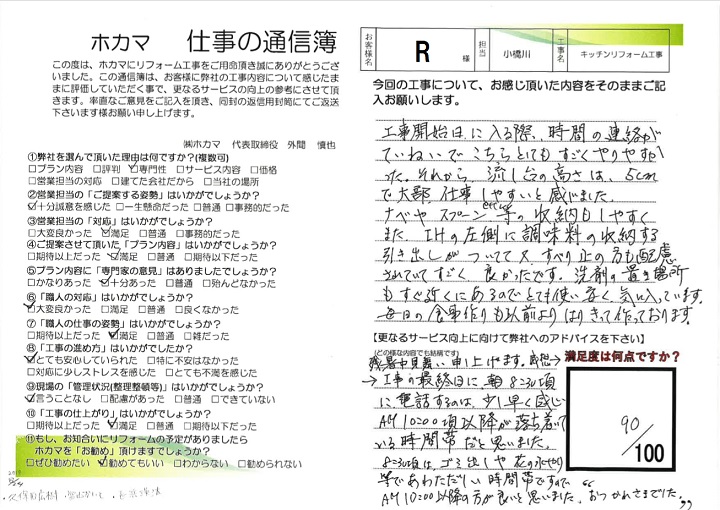 ホカマ 仕事の通信簿
この度は、ホカマにリフォーム工事をご用命頂き誠にありがとうござ
いました。この通信簿は、お客様に弊社の工事内容について感じたま
まに評価していただく事で、更なるサービスの向上の参考にさせて頂
きます。率直なご意見をご記入を頂き、同封の返信用封筒にてご返送
下さいます様お願い申し上げます。
㈱ホカマ 代表取締役 外間 慎也
①弊社を選んで頂いた理由は何ですか?(複数可)
□プラン内容 □評判 □専門性 □サービス内容 □価格
□営業担当の対応 □建てた会社だから □当社の場所
②営業担当の「ご提案する姿勢」はいかがでしょうか?
□十分誠意を感じた □一生懸命だった □普通 □事務的だった
③営業担当の「対応」はいかがでしょうか?
□大変良かった □満足 □普通 □事務的だった
④ご提案させて頂いた「プラン内容」はいかがでしょうか?
□期待以上だった □満足 □普通 □期待以下だった
⑤プラン内容に「専門家の意見」はありましたでしょうか?
□かなりあった □十分あった □普通 □殆んどなかった
⑥「職人の対応」はいかがでしょうか?
□大変良かった □満足 □普通 □良くなかった
⑦「職人の仕事の姿勢」はいかがでしょうか?
□期待以上だった □満足 □普通 □雑だった
⑧「工事の進め方」はいかがでしたか?
□とても安心していられた □特に不安はなかった
□対応に少しストレスを感じた □とても不満を感じた
⑨現場の「管理状況(整理整頓等)」はいかがでしょうか?
□言うことなし □配慮があった □普通 □できていない
⑩「工事の仕上がり」はいかがでしょうか?
□期待以上だった □満足だった □普通 □期待以下
⑪もし、お知合いにリフォームの予定がありましたら
ホカマを「お勧め」頂けますでしょうか?
□ぜひ勧めたい □勧めてもいい □わからない □勧められない
お客様名 R 様 担当 小橋川 工事名 キッチンリフォーム工事
今回の工事について、お感じ頂いた内容をそのままご記
入お願いします。
工事開始日に入る際、時間の連絡が
ていねいでこちらとてもすごくやりやすか
った。それから、流し台の高さは、5cm
で大部、仕事しやすいと感じました。
ナベやスプーン等の収納もしやすく
また、IHの左側に調味料の収納する
引き出しがついててス、すべり止の方も配慮
されていてすごく良かったです。洗剤の置き場所
もすぐ近くにあるのでとても使い安く、気に入っています。
毎日の食事作りも以前よりはりきって作っております。
【更なるサービス向上に向けて弊社へのアドバイスを下さい】
(どの様な内容でも結構です)
残暑お見舞い申し上げます。感想→
満足度は何点ですか?
90/100
→工事の最終日に朝8:30頃
に電話するのは、少し早く感じ
AM10:00頃以降が落ち着いて
いる時間帯だと思いました。
8:30頃は、ゴミ出しや花の水やり
等であわただしい時間帯ですので
AM10:00以降の方が良いと思いました。“おつかれさまでした。”